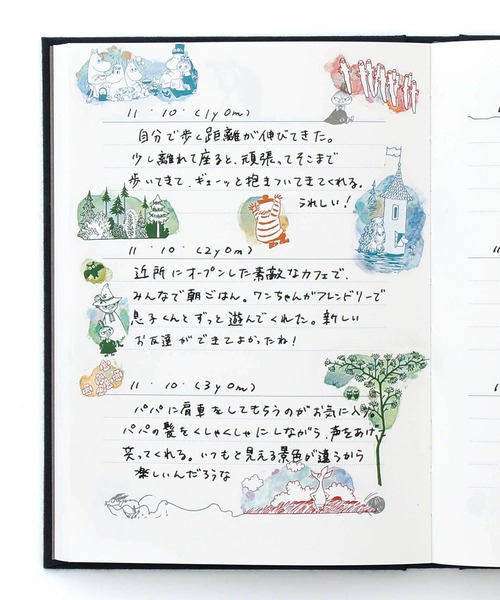 11・10・(1y0m)
自分で歩く距離が伸びてきた。
少し離れて座ると、頑張ってそこまで
歩いてきて、ギューッと抱きついてきてくれる。
うれしい！
11・10・(2y0m)
近所にオープンした素敵なカフェで、
みんなで朝ごはん。ワンちゃんがフレンドリーで
息子くんとずっと遊んでくれた。新しい
お友達ができてよかったね！
11・10・(3y0m)
パパに肩車をしてもらうのがお気に入り。
パパの髪をくしゃくしゃにしながら、声をあげ
笑ってくれる。いつもと見える景色が違うから
楽しいんだろうな